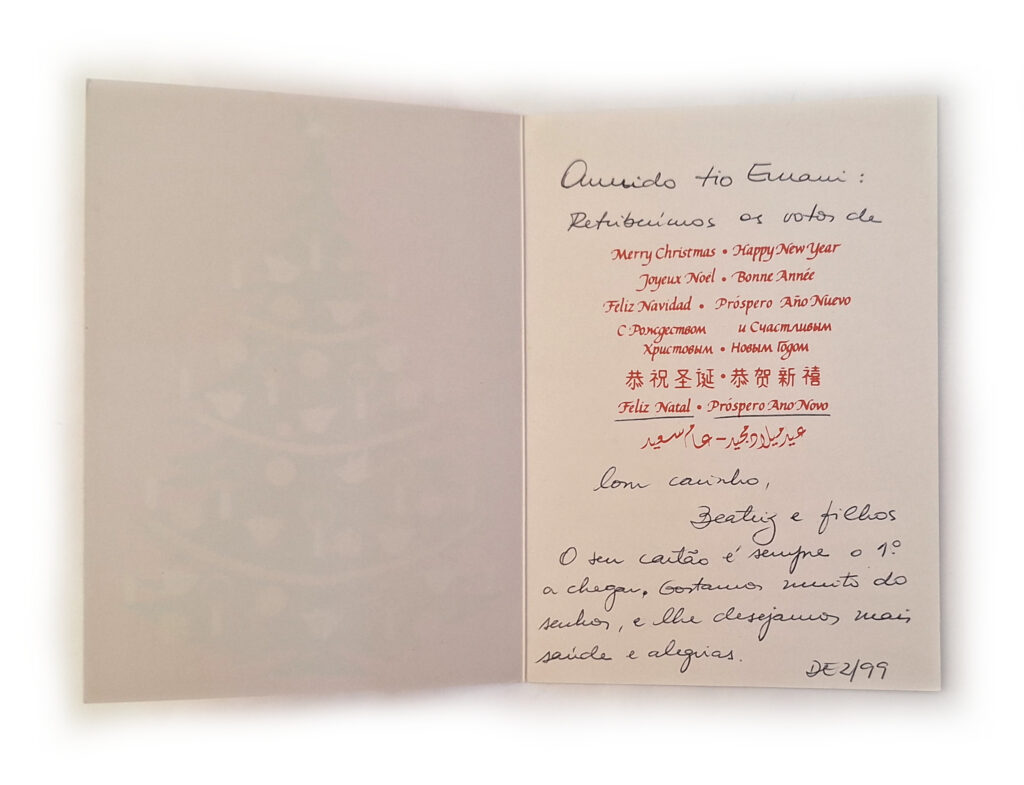 Querido tio Ernani:
Retribuímos os votos de
Merry Christmas • Happy New Year
Joyeux Noel • Bonne Année
Feliz Navidad • Próspero Año Nuevo
С Рождеством и Счастливым
Христовым • Новым Годом
恭祝圣诞•恭贺新禧
Feliz Natal • Próspero Ano Novo
عيد ميلاد مجيد – عام سعيد
Com carinho,
Beatriz e filhos
O seu cartão é sempre o 1º
a chegar. Gostamos muito do
senhor, e lhe desejamos mais
saúde e alegrias.
DEZ/99